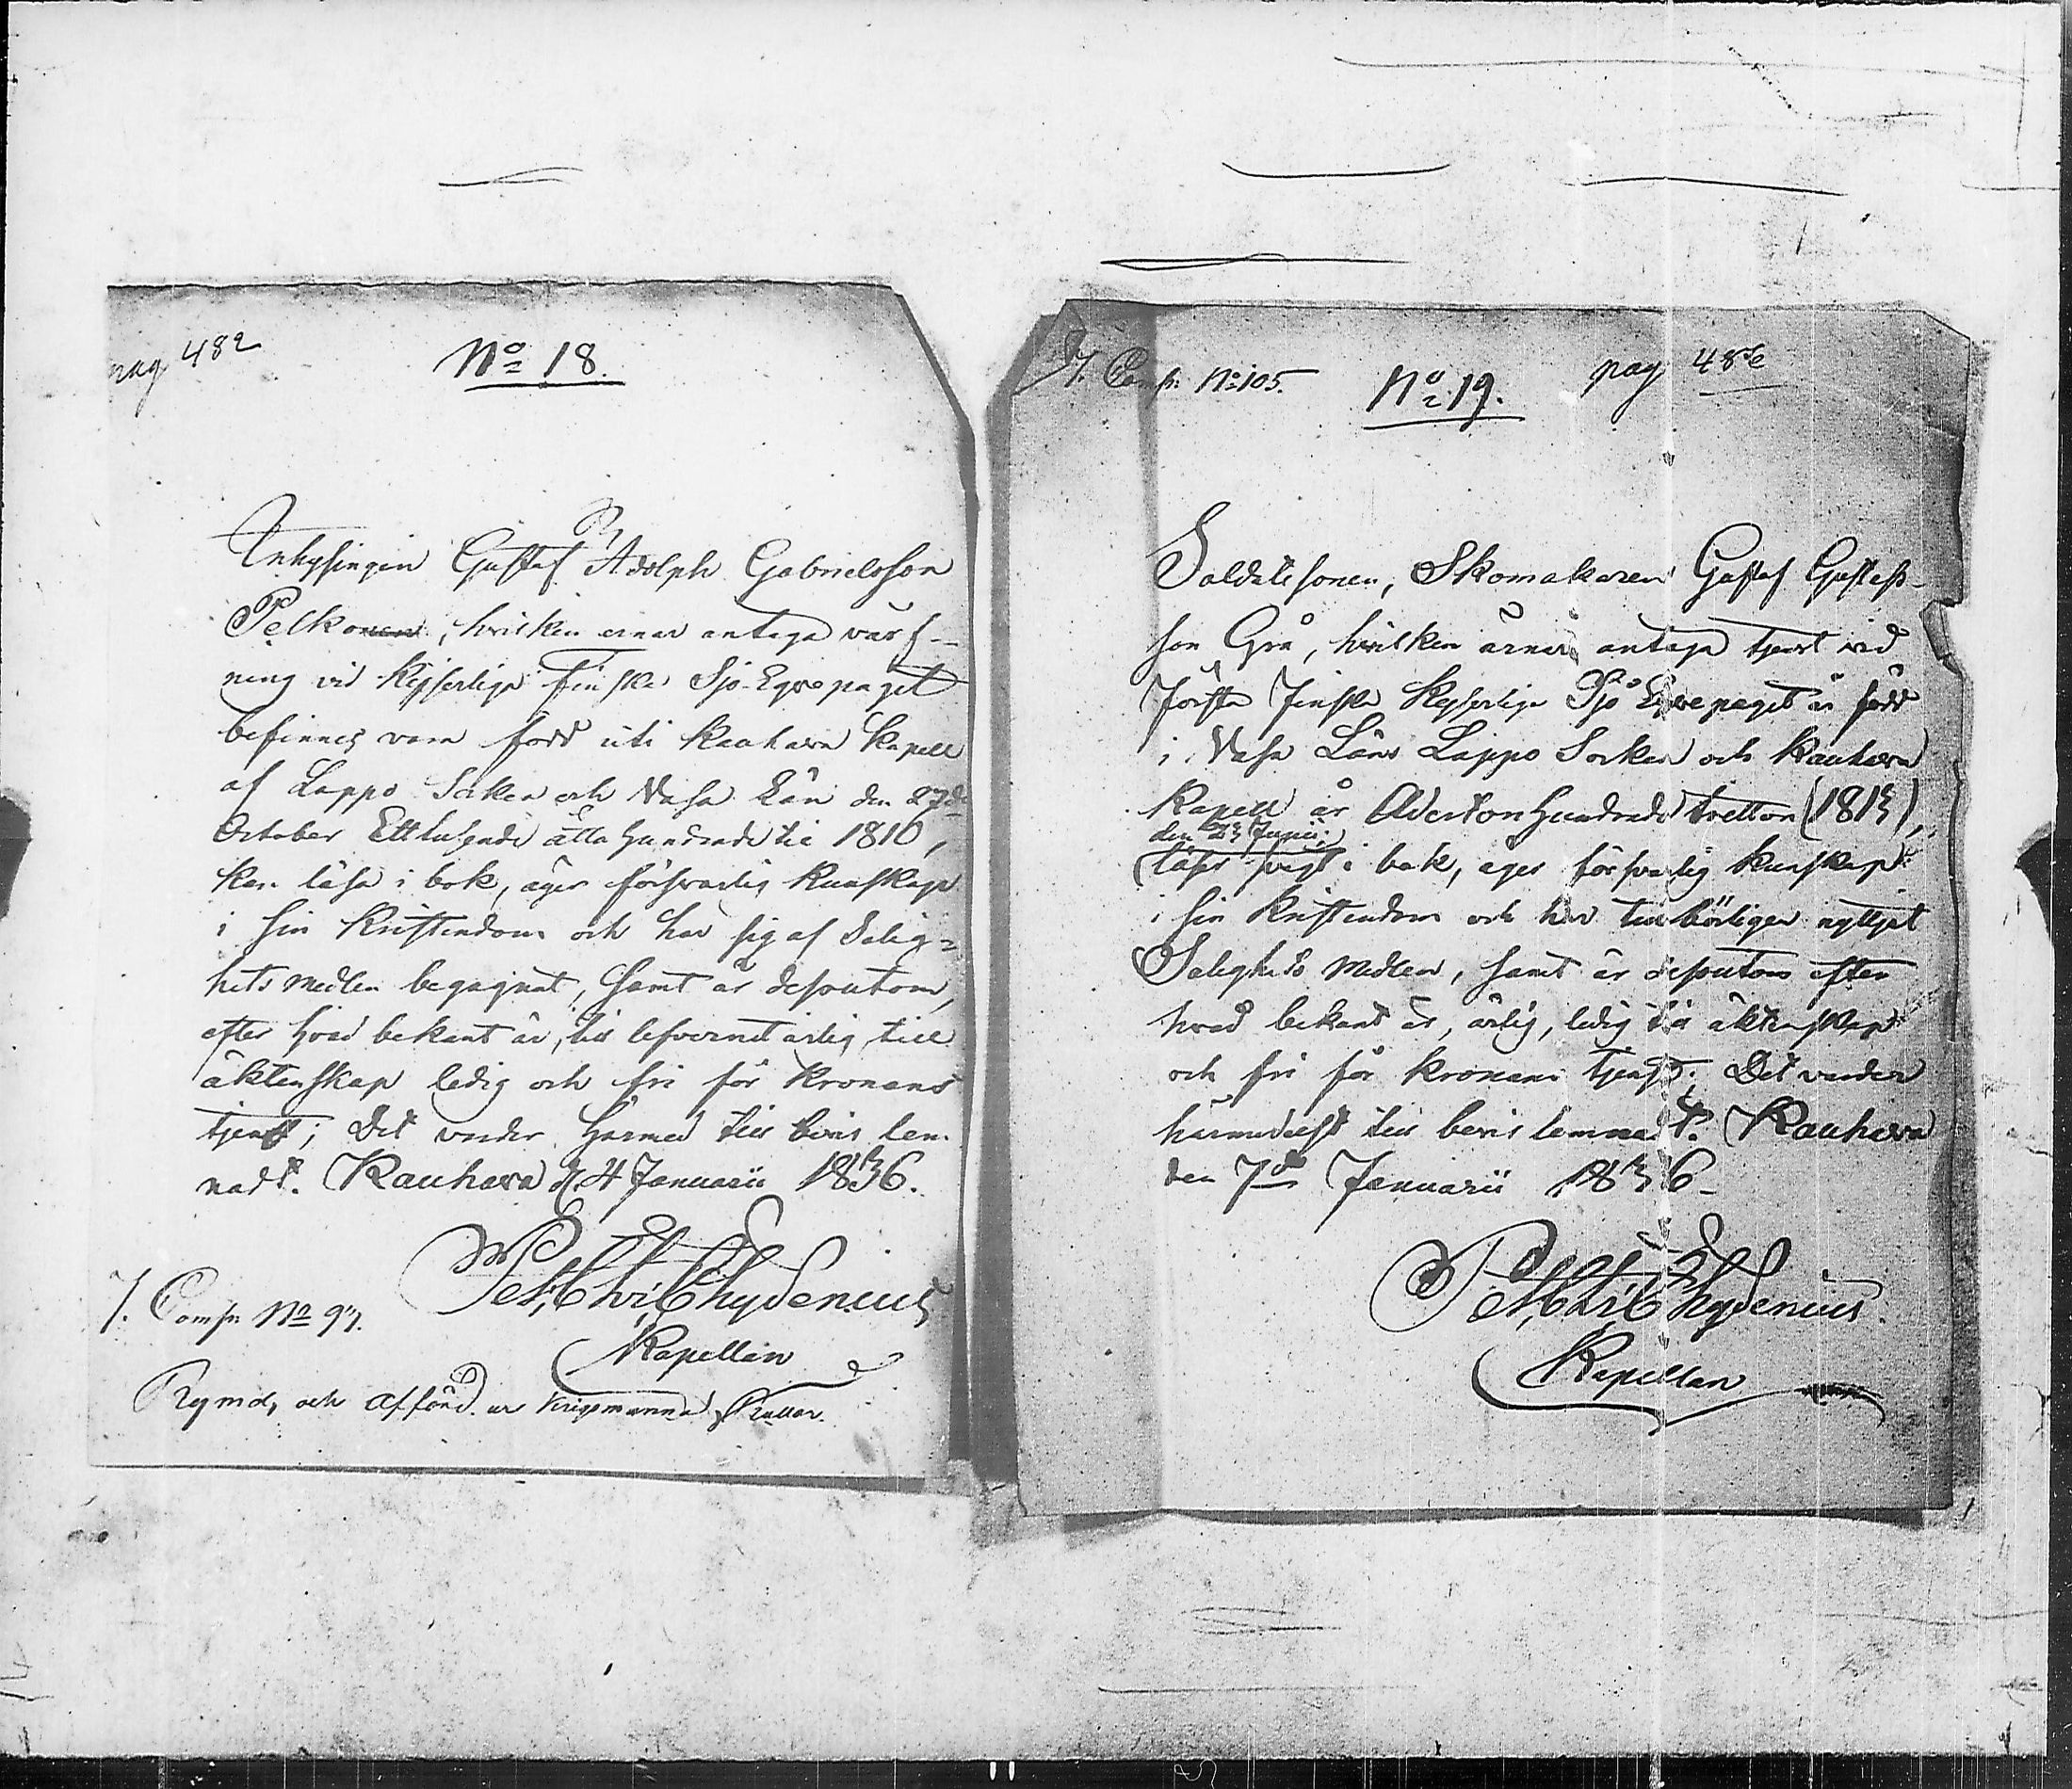 pag 482
No 18.
Inhysingen Gustaf Adolph Gabrielsson
Pelkonen, hvilken ernar antaga värf-
ning vid Kejserliga Finska Sjö-Eqvepaget
befinnes vara född uti Kauhava Kapell
af Lappo Socken och Vasa Län den 27de
October Ett tusende åtta hundrade tie 1810,
kan läsa i bok, äger försvarlig kunskap
i sin Kristendom och har sig af Salig=
hets medlen begagnat, samt är dessutom,
efter hvad bekant är, till lefvernet ärlig, till
äktenskap ledig och fri för Kronans
tjenst; Det varder härmed till bevis lem-
nadt. Kauhava d. 4 Januarii 1836.
Pet. Chr. Chydenius
Kapellan
7. Comp. No 97.
Rymd, och afförd ur Krigsmanna Rullor.
7. Comp. No 105.
No 19.
pag 482
Soldatssonen, Skomakaren Gustaf Gustafs-
son Grå, hvilken ärnar antaga tjenst vid
Första Finska Kejserliga Sjö Eqvepaget är född
i Vasa Läns Lappo Socken och Kauhava
Kapell år Adertonhundrade tretton (1813),
den 23 Junii;
läser i bok, eger försvarlig kunskap
i sin Kristendom och har tillbörligen nyttjat
Salighets Medlen, samt är dessutom efter
hvad bekant är, ärlig, ledig till äktenskap
och fri för Kronans tjenst; Det varder
härmedelst till bevis lemnadt. Kauhava
den 7de Januarii 1836.
Pet. Chr. Chydenius.
Kapellan